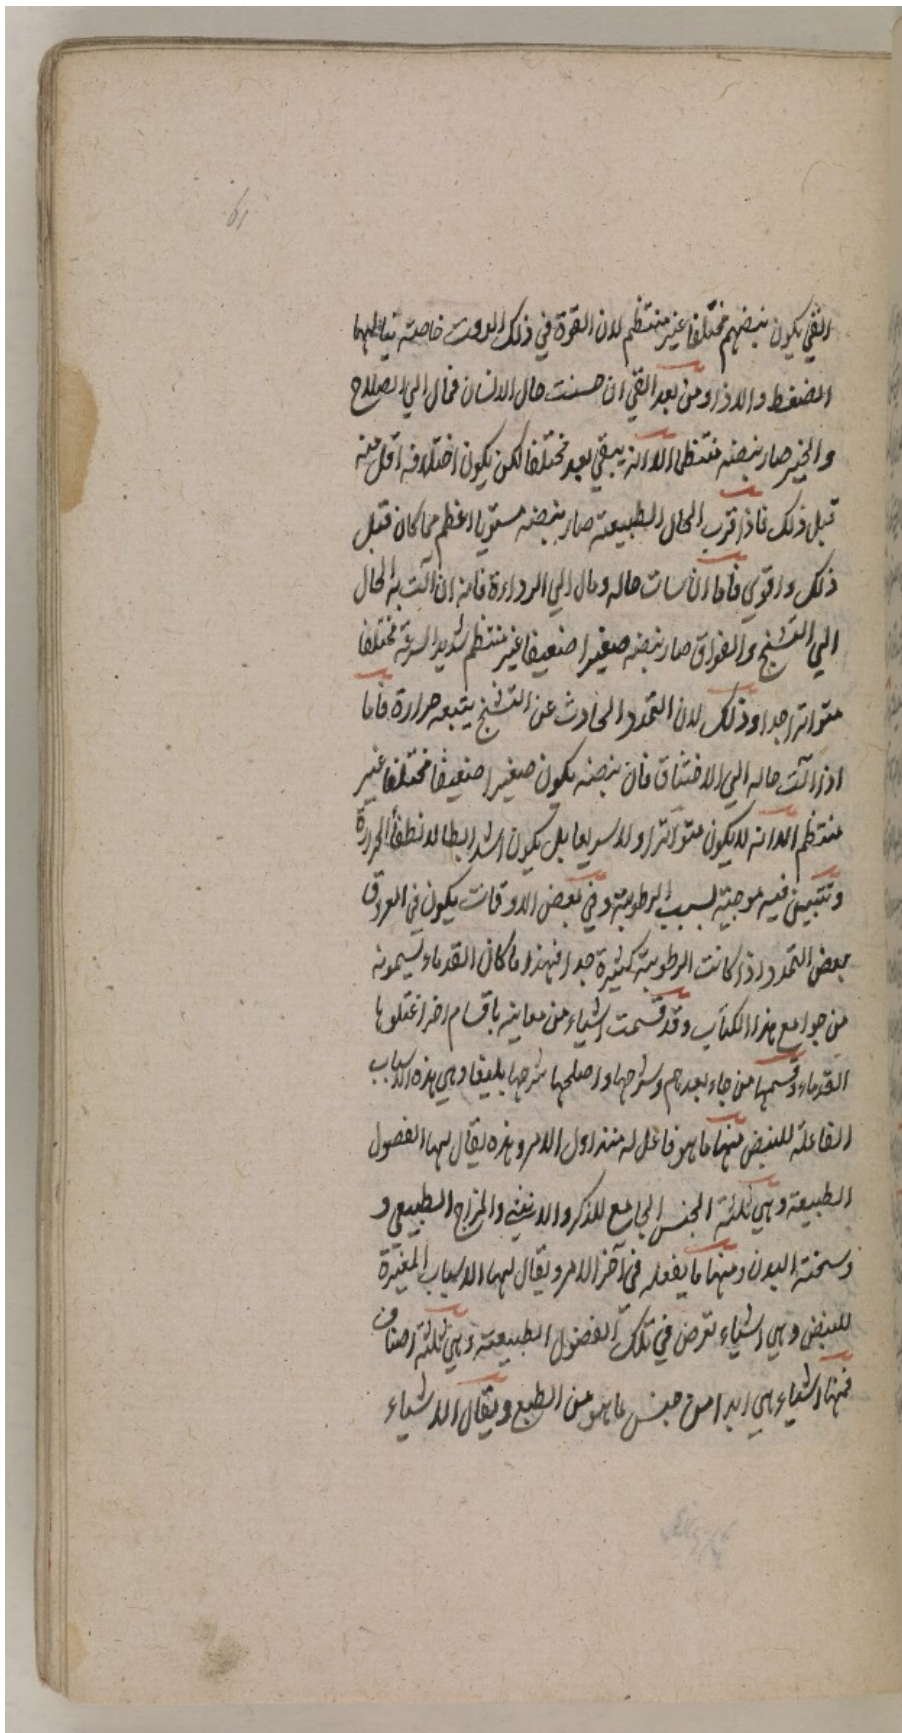 61
القي يكون نبضهم مختلفا غير منتظم لان القوة في ذلك الوقت خاصة ينالها
الضغط والاذا ومن بعد القي ان حسنت حال الانسان فمال الي الصلاح
والخير صار نبضه منتظما الا انه يبقي بعد مختلفا لكن يكون اختلافه اقل منه
قبل ذلك فاذا قرب الحال الطبيعية صار نبضه مستويا اعظم مما كان قبل
ذلك واقوي فاما ان سات حاله ومال الي الرداءة فانه ان الت به الحال
الي التشنج والفواق صار نبضه صغيرا ضعيفا غير منتظم شديد السرعة مختلفا
متواترا جدا وذلك لان التمدد الحادث عن التشنج يتبعه حرارة فاما
اذا الت حاله الي الاختناق فان نبضه يكون صغيرا ضعيفا مختلفا غير
منتظم الا انه لا يكون متواترا ولا سريعا بل يكون اشد ابطا لانطفأ الحرارة
وتتبين فيه موجية بسبب الرطوبة وفي بعض الاوقات يكون في العروق
بعض التمدد اذا كانت الرطوبة كثيرة جدا فهذا ما كان القدماء يسمونه
من جوامع هذا الكتاب وقد قسمت اشياء من معانيه باقسام اخر اغفلوها
القدماء وقسمها من جاء بعدهم وشرحها واصلحها شرحها بليغا وهي هذه الاسباب
الفاعلة للنبض منها ما هو فاعل له منذ اول الامر وهذه يقال لها الفصول
الطبيعة وهي ثلثة الجنس الجامع للذكر والانثي والمزاج الطبيعي و
وسحنة البدن ومنها ما يفعله في آخر الامر ويقال لها الاسباب المغيرة
للنبض وهي اشياء تعرض في تلك الفصول الطبيعية وهي ثلثة اصناف
فمنها اشياء هي ابدا من جنس ما هو من الطبع ويقال الاشياء